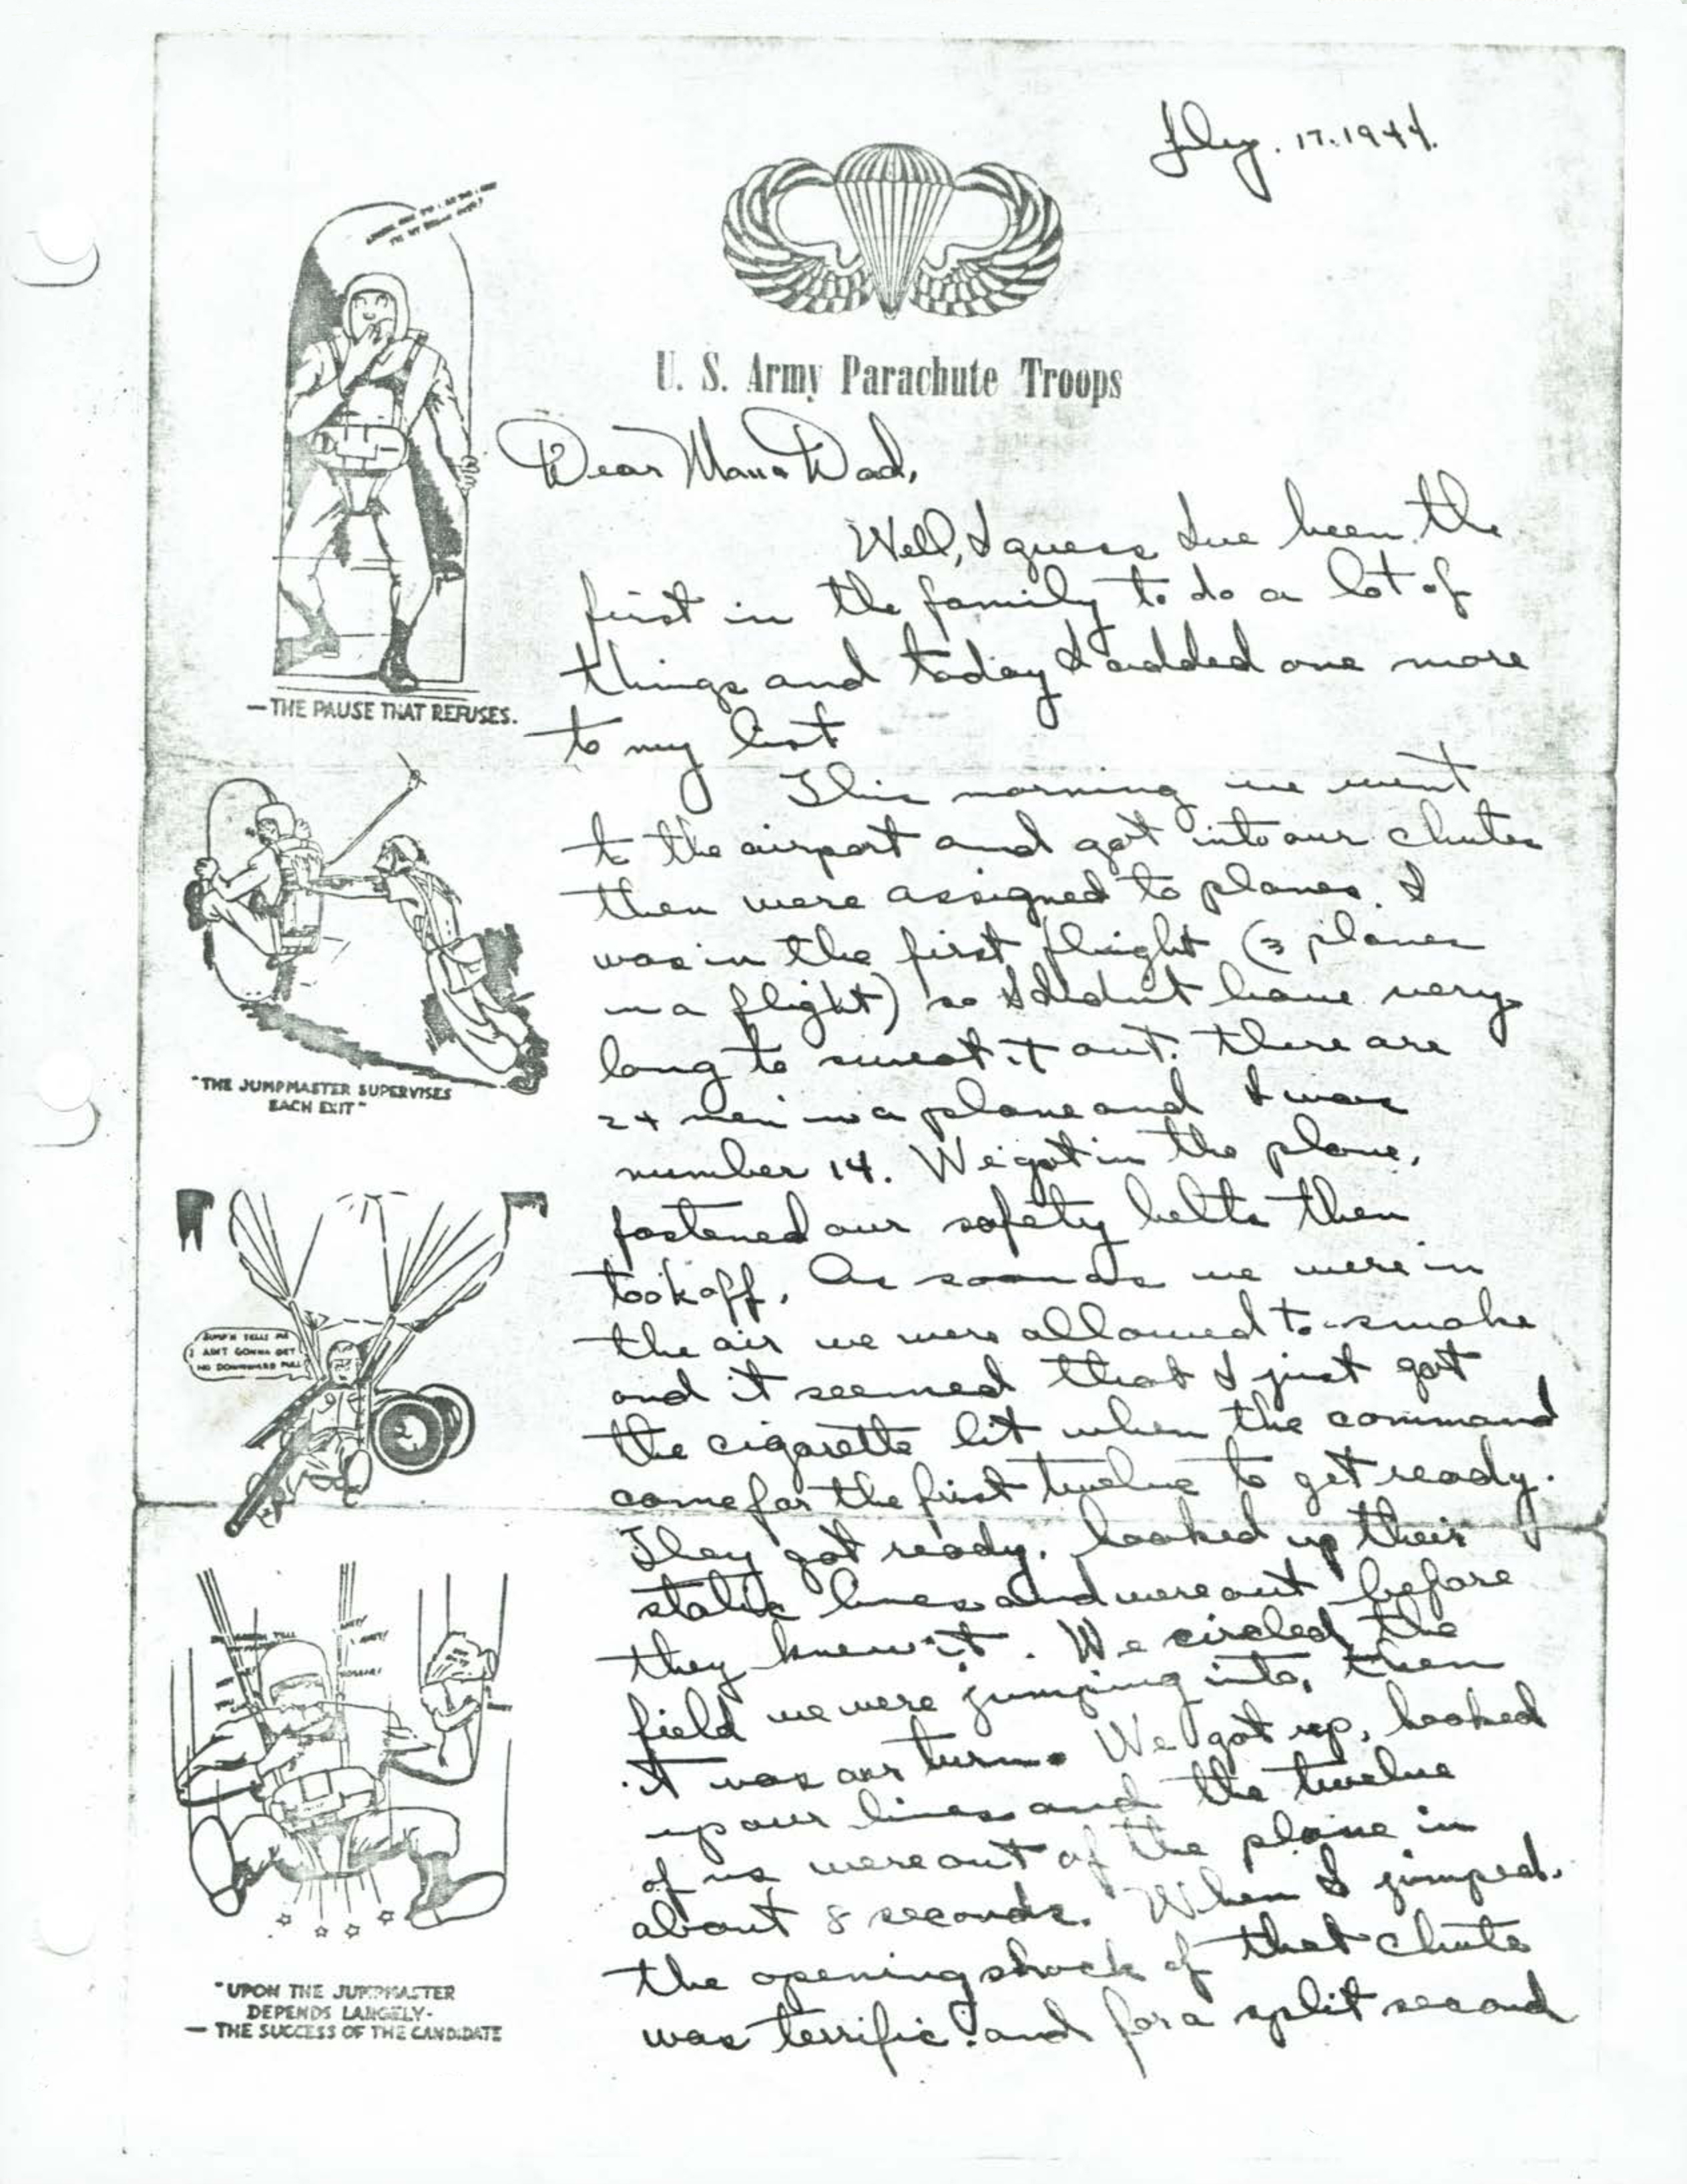 July. 17. 1944.
U. S. Army Parachute Troops
— THE PAUSE THAT REFUSES.
"THE JUMPMASTER SUPERVISES
EACH EXIT"
JUMP'N TELLS ME
I AIN'T GONNA GET
NO DOWNWARD PULL
"UPON THE JUMPMASTER
DEPENDS LARGELY-
— THE SUCCESS OF THE CANDIDATE
Dear Mom & Dad,
Well, I guess I've been the
first in the family to do a lot of
things and today I added one more
to my list
This morning we went
to the airport and got into our chutes
then were assigned to planes. I
was in the first flight (3 planes
in a flight) so I didn't have very
long to sweat it out. There are
24 men in a plane and I was
number 14. We got in the plane,
fastened our safety belts then
took off. As soon as we were in
the air we were allowed to smoke
and it seemed that I just got
the cigarette lit when the command
come for the first twelve to get ready.
They got ready. hooked up their
static lines and were out before
they knew it. We circled the
field we were jumping into, then
it was our turn. We got up, hooked
up our lines and the twelve
of us were out of the plane in
about 8 seconds. When I jumped.
the opening shock of that chute
was terrific! and for a split second